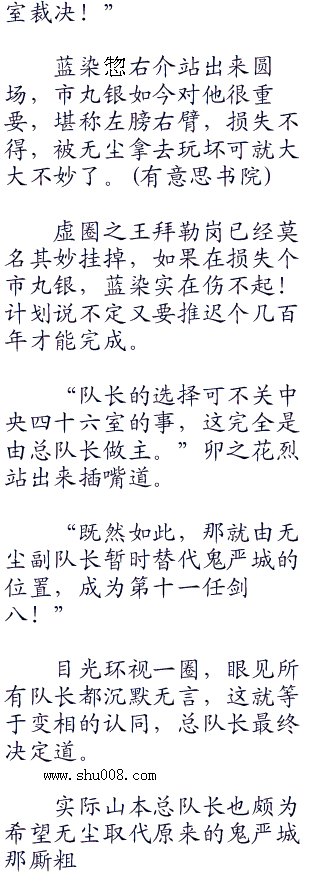 室裁决！”
蓝染惣右介站出来圆
场，市丸银如今对他很重
要，堪称左膀右臂，损失不
得，被无尘拿去玩坏可就大
大不妙了。(有意思书院)
虚圈之王拜勒岗已经莫
名其妙挂掉，如果在损失个
市丸银，蓝染实在伤不起！
计划说不定又要推迟个几百
年才能完成。
“队长的选择可不关中
央四十六室的事，这完全是
由总队长做主。”卯之花烈
站出来插嘴道。
“既然如此，那就由无
尘副队长暂时替代鬼严城的
位置，成为第十一任剑
八！”
目光环视一圈，眼见所
有队长都沉默无言，这就等
于变相的认同，总队长最终
决定道。
www.shu008.com
实际山本总队长也颇为
希望无尘取代原来的鬼严城
那厮粗